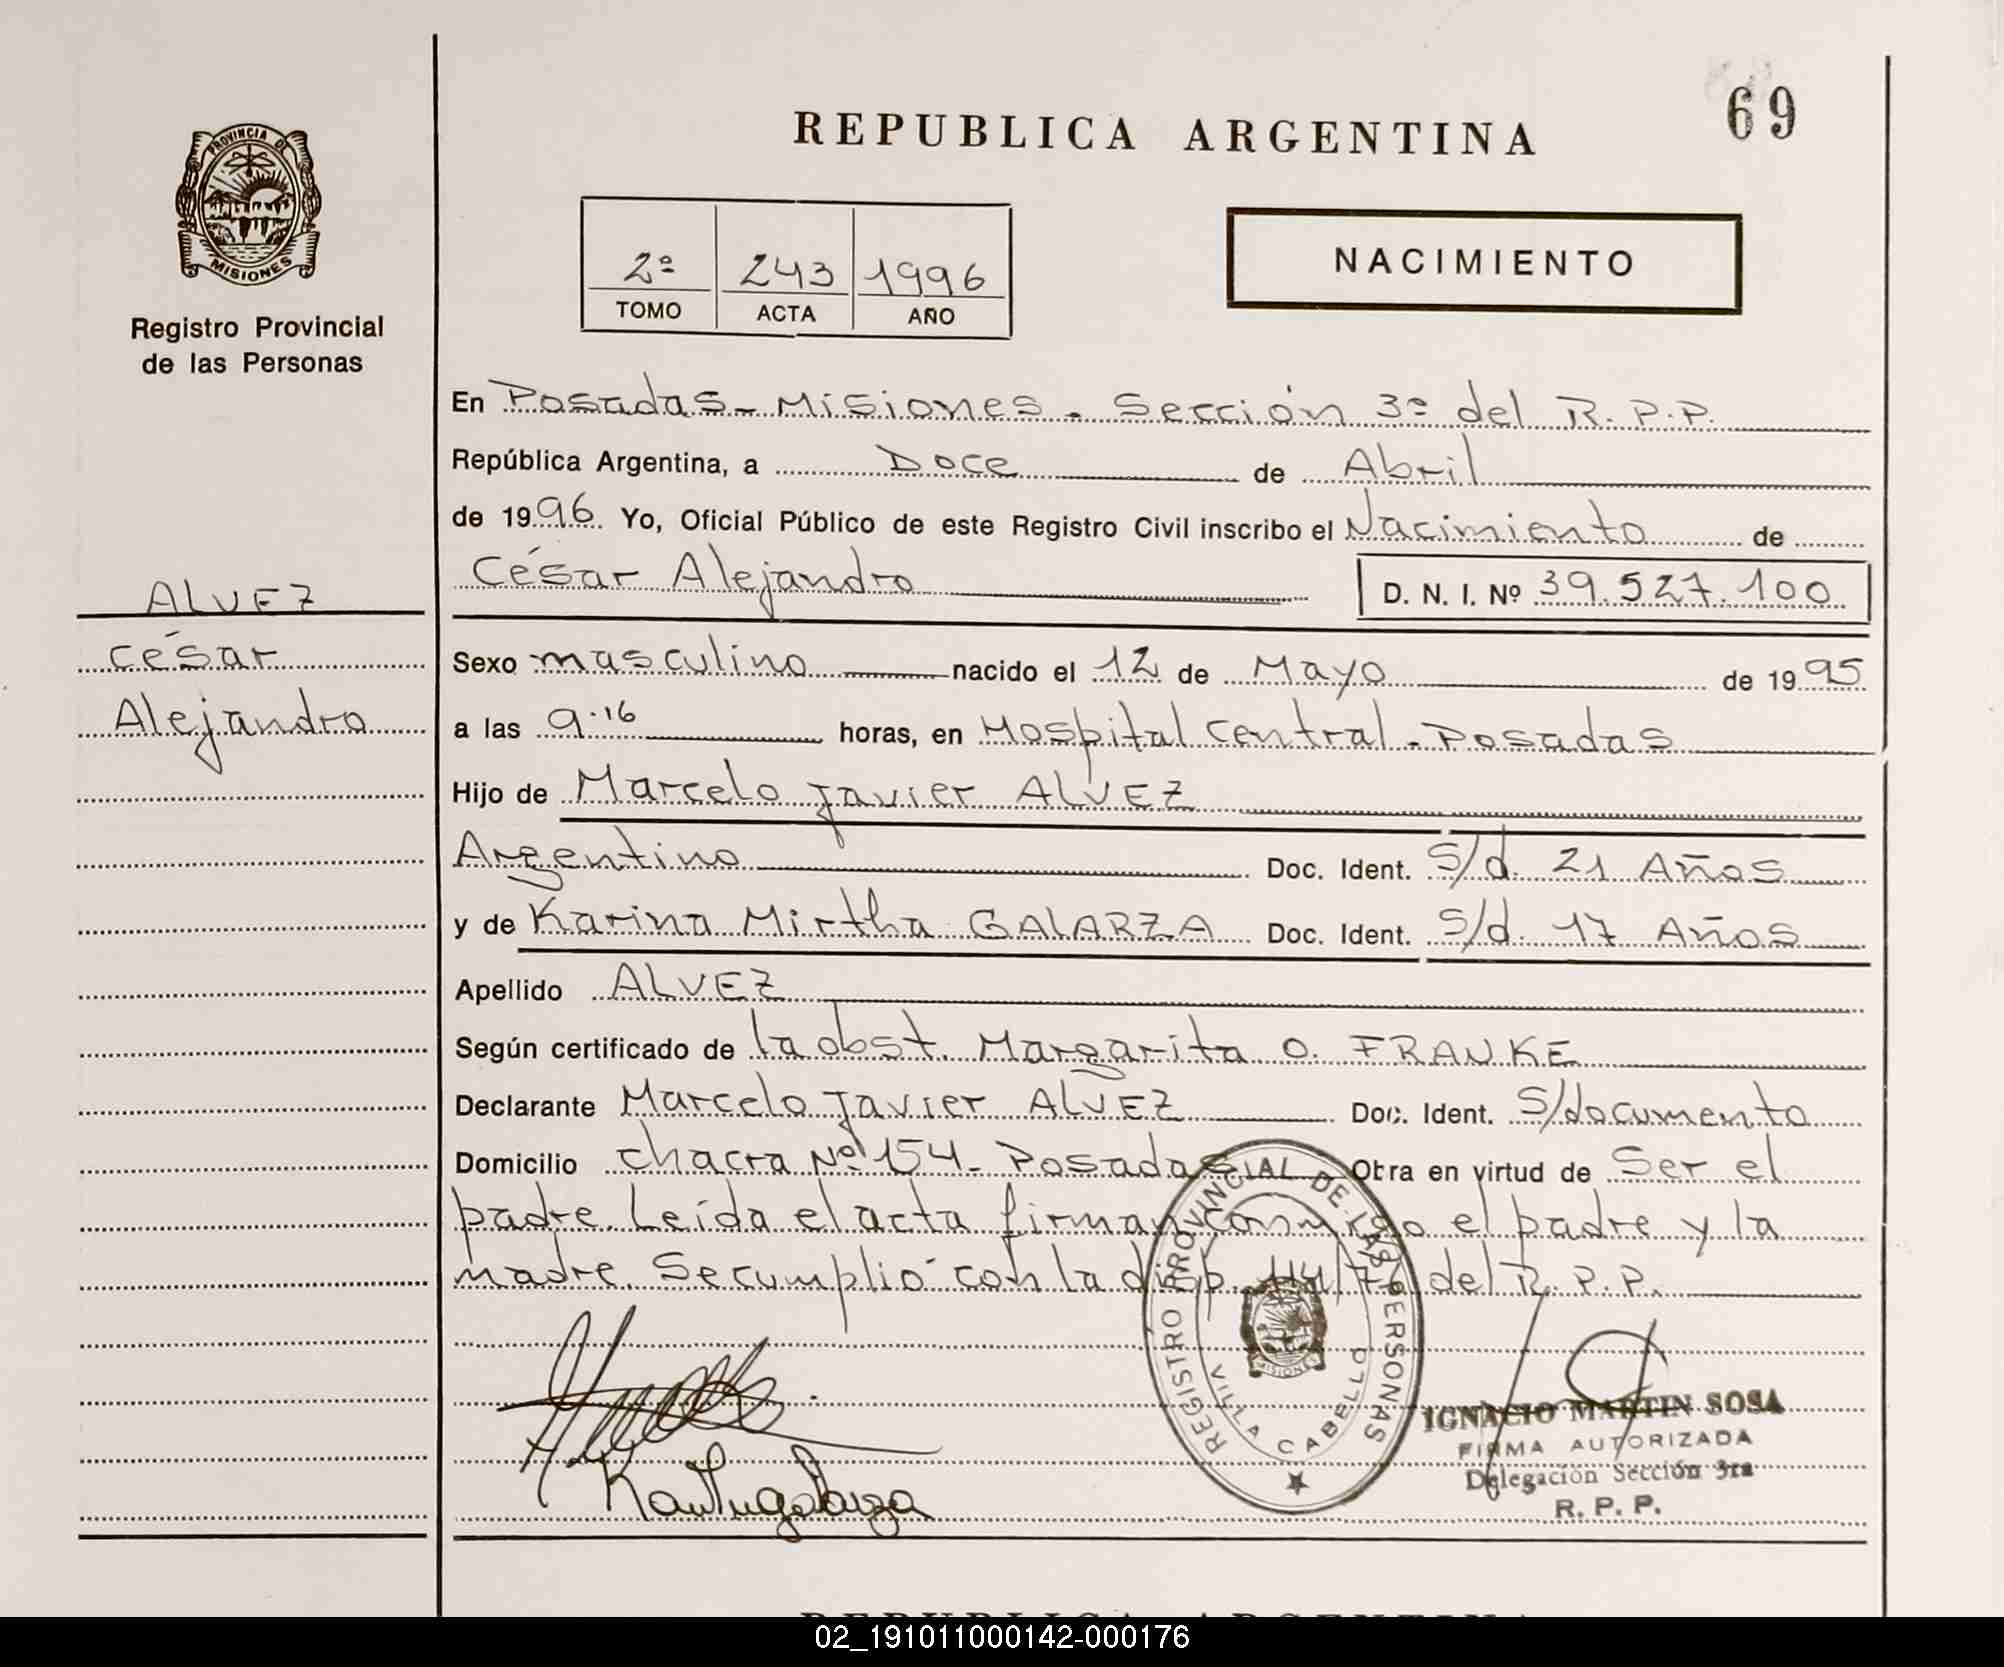 69
REPUBLICA ARGENTINA
PROVINCIA DE
MISIONES
Registro Provincial
de las Personas
2º 243 1996
TOMO ACTA AÑO
NACIMIENTO
En Posadas - Misiones. Sección 3º del R.P.P.
República Argentina, a Doce de Abril
de 1996. Yo, Oficial Público de este Registro Civil inscribo el Nacimiento de
César Alejandro D. N. I. Nº 39.527.100
ALVEZ
César
Alejandro
Sexo masculino nacido el 12 de Mayo de 1995
a las 9.16 horas, en Hospital Central - Posadas
Hijo de Marcelo Javier ALVEZ
Argentino Doc. Ident. S/d. 21 Años
y de Karina Mirtha GALARZA Doc. Ident. S/d. 17 Años
Apellido ALVEZ
Según certificado de la obst. Margarita O. FRANKE
Declarante Marcelo Javier ALVEZ Doc. Ident. S/documento
Domicilio chacra Nº 154 - Posadas Obra en virtud de Ser el
padre. Leída el acta firman conmigo el padre y la
madre. Se cumplió con la disp. del R.P.P.
REGISTRO PROVINCIAL DE LAS PERSONAS
MISIONES
VILLA CABELLO
IGNACIO MARTIN SOSA
FIRMA AUTORIZADA
Delegación Sección 3ra
R. P. P.
REPUBLICA ARGENTINA
02_191011000142-000176